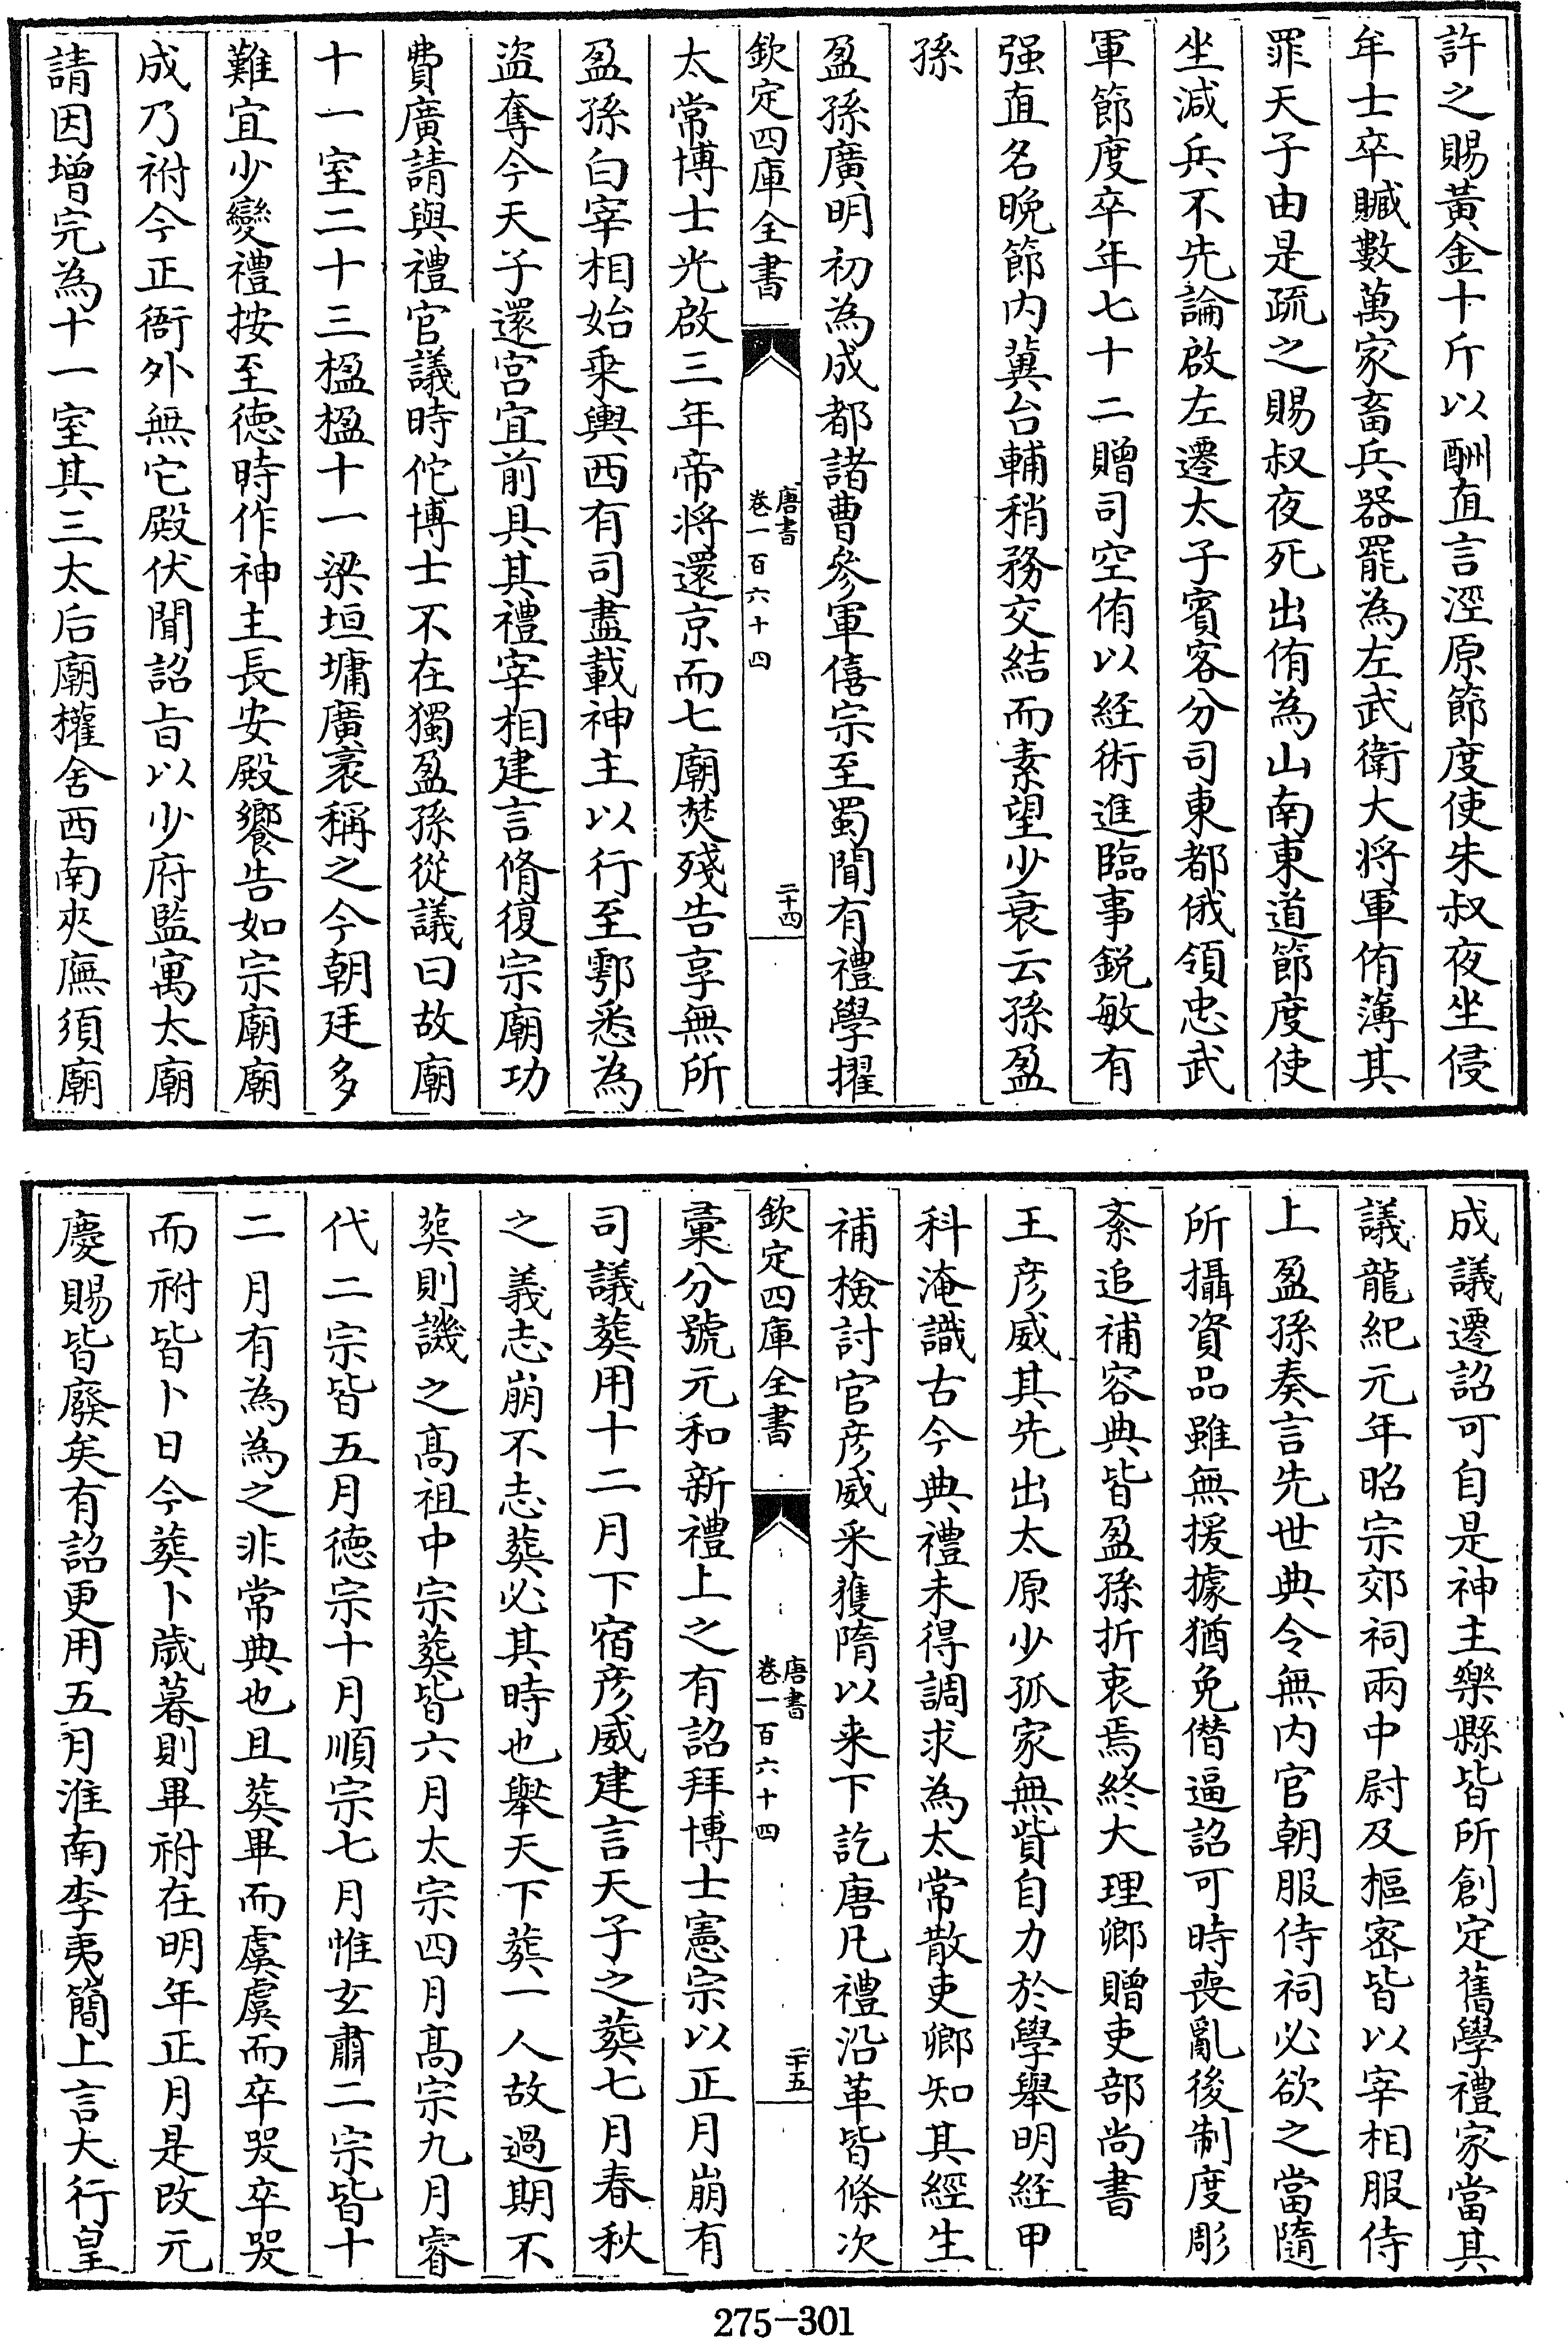 許之賜黃金十斤以酬直言涇原節度使朱叔夜坐侵
牟士卒贓數萬家畜兵器罷為左武衛大將軍侑薄其
罪天子由是疏之賜叔夜死出侑為山南東道節度使
坐減兵不先論啟左遷太子賓客分司東都俄領忠武
軍節度卒年七十二贈司空侑以經術進臨事銳敏有
强直名晚節内兾台輔稍務交結而素望少衰云孫盈
孫
盈孫廣明初為成都諸曹參軍僖宗至蜀聞有禮學擢
欽定四庫全書
唐書
卷一百六十四
二十四
太常博士光啟三年帝將還京而七廟焚殘告享無所
盈孫白宰相始乗輿西有司盡載神主以行至鄠悉為
盜奪今天子還宮宜前具其禮宰相建言脩復宗廟功
費廣請與禮官議時佗博士不在獨盈孫從議曰故廟
十一室二十三楹楹十一梁垣墉廣袤稱之今朝廷多
難宜少變禮按至德時作神主長安殿饗告如宗廟廟
成乃祔今正衙外無它殿伏聞詔旨以少府監寓太廟
請因增完為十一室其三太后廟權舍西南夾廡須廟
成議遷詔可自是神主樂縣皆所創定舊學禮家當其
議龍紀元年昭宗郊祠兩中尉及樞密皆以宰相服侍
上盈孫奏言先世典令無内官朝服侍祠必欲之當隨
所攝資品雖無援據猶免僭逼詔可時喪亂後制度彫
紊追補容典皆盈孫折衷焉終大理卿贈吏部尚書
王彦威其先出太原少孤家無貲自力於學舉明經甲
科淹識古今典禮未得調求為太常散吏卿知其經生
補檢討官彦威采獲隋以来下訖唐凡禮沿革皆條次
欽定四庫全書
唐書
卷一百六十四
二十五
彚分號元和新禮上之有詔拜博士憲宗以正月崩有
司議葬用十二月下宿彦威建言天子之葬七月春秋
之義志崩不志葬必其時也舉天下葬一人故過期不
葬則譏之髙祖中宗葬皆六月太宗四月髙宗九月睿
代二宗皆五月德宗十月順宗七月惟玄肅二宗皆十
二月有為為之非常典也且葬畢而虞虞而卒哭卒哭
而祔皆卜日今葬卜歲暮則畢祔在明年正月是改元
慶賜皆廢矣有詔更用五月淮南李夷簡上言大行皇
275-301